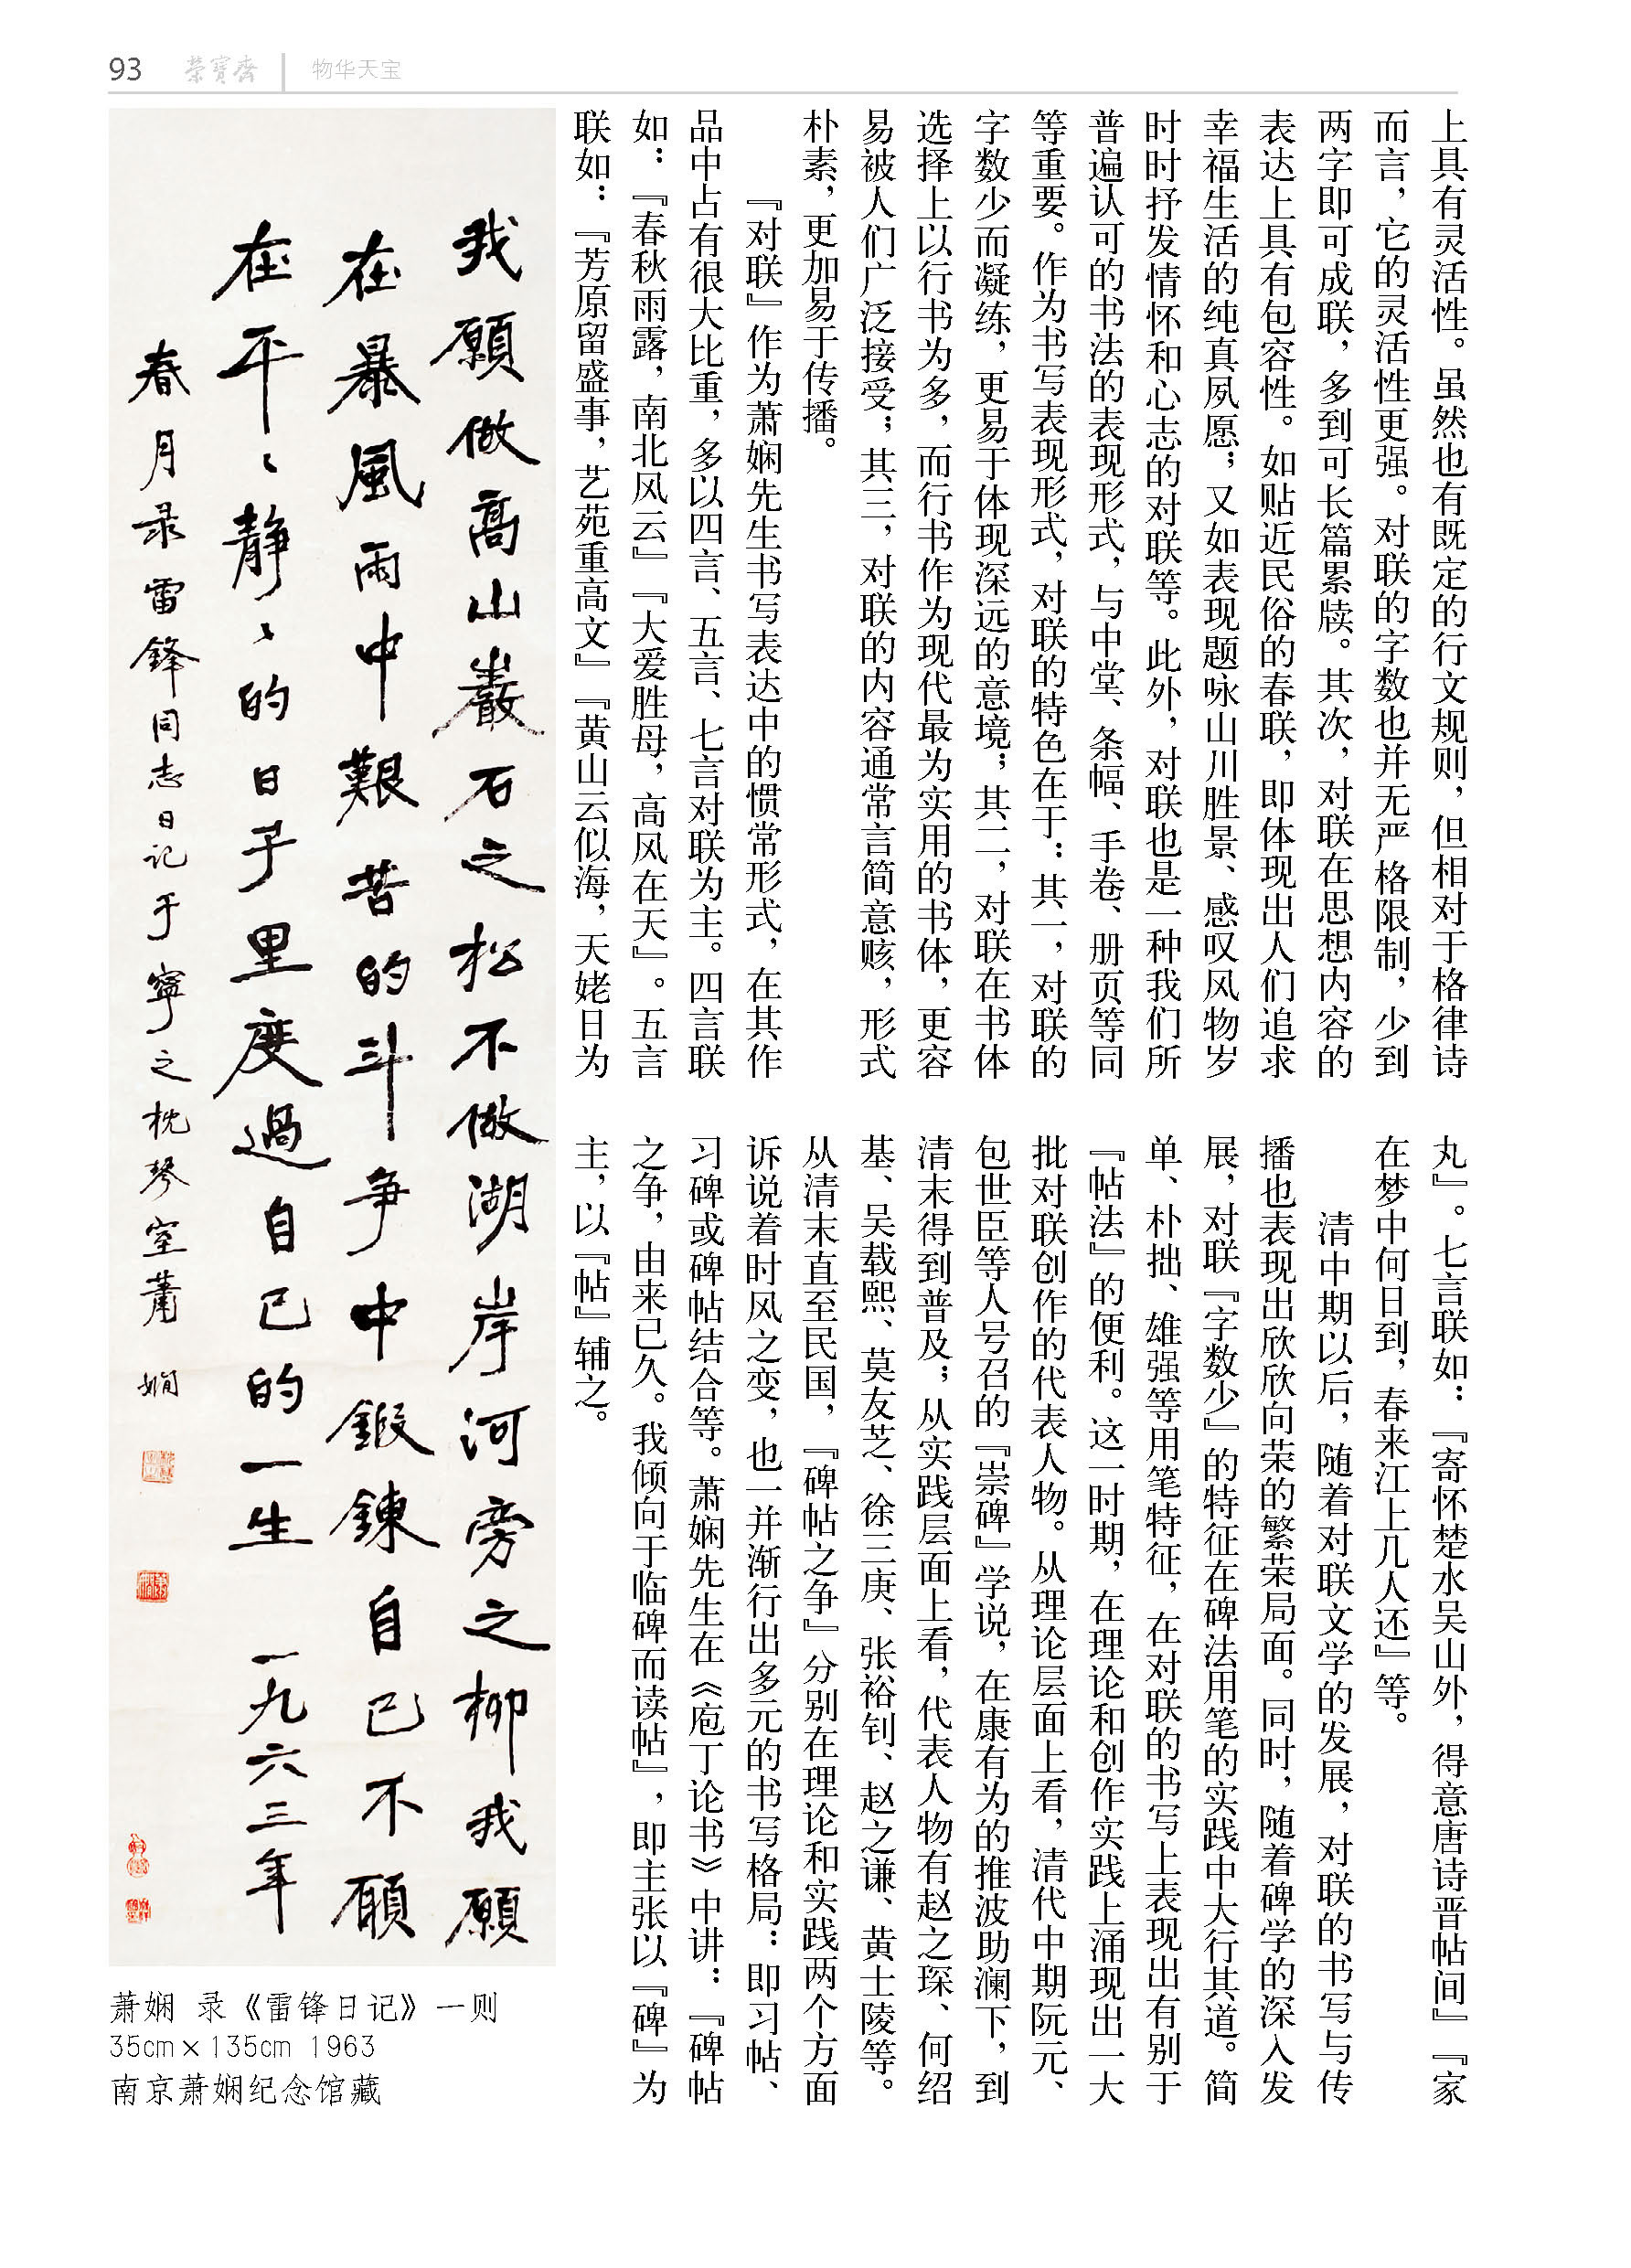 93 荣宝斋 物华天宝
上具有灵活性。虽然也有既定的行文规则，但相对于格律诗
而言，它的灵活性更强。对联的字数也并无严格限制，少到
两字即可成联，多到可长篇累牍。其次，对联在思想内容的
表达上具有包容性。如贴近民俗的春联，即体现出人们追求
幸福生活的纯真夙愿；又如表现题咏山川胜景、感叹风物岁
时时抒发情怀和心志的对联等。此外，对联也是一种我们所
普遍认可的书法的表现形式，与中堂、条幅、手卷、册页等同
等重要。作为书写表现形式，对联的特色在于：其一，对联的
字数少而凝练，更易于体现深远的意境；其二，对联在书体
选择上以行书为多，而行书作为现代最为实用的书体，更容
易被人们广泛接受；其三，对联的内容通常言简意赅，形式
朴素，更加易于传播。
『对联』作为萧娴先生书写表达中的惯常形式，在其作
品中占有很大比重，多以四言、五言、七言对联为主。四言联
如：『春秋雨露，南北风云』『大爱胜母，高风在天』。五言
联如：『芳原留盛事，艺苑重高文』『黄山云似海，天姥日为
丸』。七言联如：『寄怀楚水吴山外，得意唐诗晋帖间』『家
在梦中何日到，春来江上几人还』等。
清中期以后，随着对联文学的发展，对联的书写与传
播也表现出欣欣向荣的繁荣局面。同时，随着碑学的深入发
展，对联『字数少』的特征在碑法用笔的实践中大行其道。简
单、朴拙、雄强等用笔特征，在对联的书写上表现出有别于
『帖法』的便利。这一时期，在理论和创作实践上涌现出一大
批对联创作的代表人物。从理论层面上看，清代中期阮元、
包世臣等人号召的『崇碑』学说，在康有为的推波助澜下，到
清末得到普及；从实践层面上看，代表人物有赵之琛、何绍
基、吴载熙、莫友芝、徐三庚、张裕钊、赵之谦、黄士陵等。
从清末直至民国，『碑帖之争』分别在理论和实践两个方面
诉说着时风之变，也一并渐行出多元的书写格局：即习帖、
习碑或碑帖结合等。萧娴先生在《庖丁论书》中讲：『碑帖
之争，由来已久。我倾向于临碑而读帖』，即主张以『碑』为
主，以『帖』辅之。
我願做高山巖石之松不做湖岸河旁之柳我願
在暴風雨中艱苦的斗争中鍛鍊自己不願
在平〻静〻的日子里度過自己的一生 一九六三年
春月录雷锋同志日记于寧之枕琴室萧娴
萧娴 录《雷锋日记》一则
35cm×135cm 1963
南京萧娴纪念馆藏